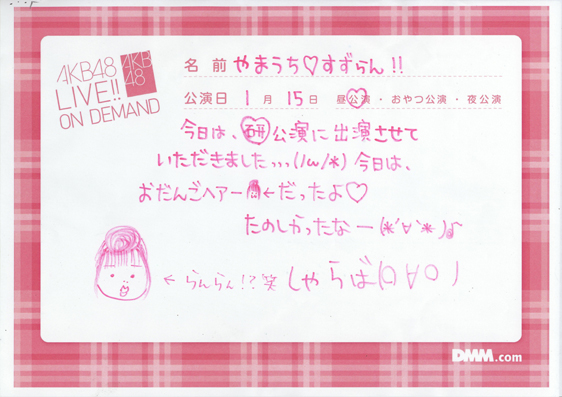 AKB48
LIVE!!
ON DEMAND
AKB
48
名前 やまうち♡すずらん!!
公演日 1月15日 昼公演・おやつ公演・夜公演
今日は、研公演に出演させて
いただきました、、、(/ω/*)今日は、
おだんごヘアー←だったよ♡
たのしかったなー(*´∀`*)♪
←らんらん!?笑 しゃらば(ロ∀ロ)ノ
DMM.com